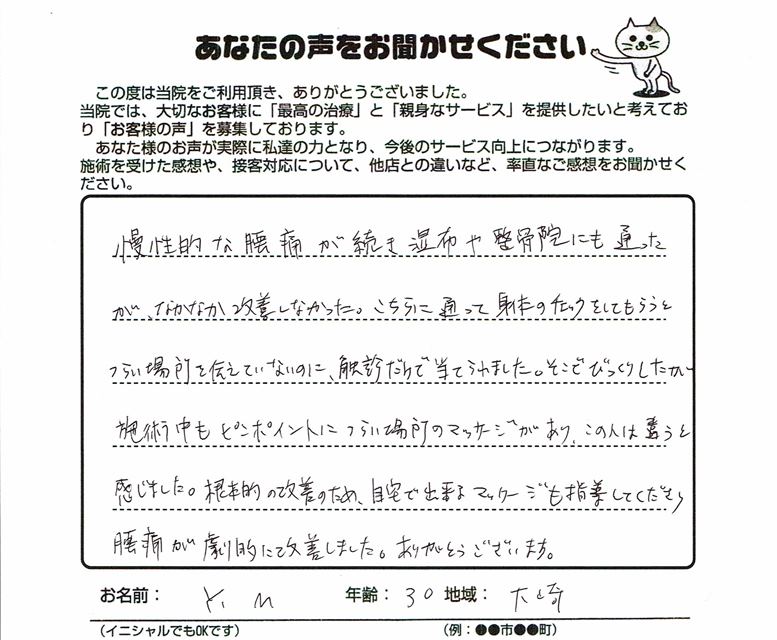 あなたの声をお聞かせください
この度は当院をご利用頂き、ありがとうございました。
当院では、大切なお客様に「最高の治療」と「親身なサービス」を提供したいと考えてお
り「お客様の声」を募集しております。
あなた様のお声が実際に私達の力となり、今後のサービス向上につながります。
施術を受けた感想や、接客対応について、他店との違いなど、率直なご感想をお聞かせく
ださい。
慢性的な腰痛が続き湿布や整骨院にも通った
が、なかなか改善しなかった。こちらに通って身体のチェックをしてもらうと
つらい場所を伝えていないのに、触診だけで当てられました。そこでびっくりしたが
施術中もピンポイントにつらい場所のマッサージがあり、この人は違うと
感じました。根本的の改善のため、自宅で出来るマッサージも指導してくださり
腰痛が劇的に改善しました。ありがとうございます。
お名前： Y. M 年齢： 30 地域： 大崎
（イニシャルでもOKです） （例：●●市●●町）